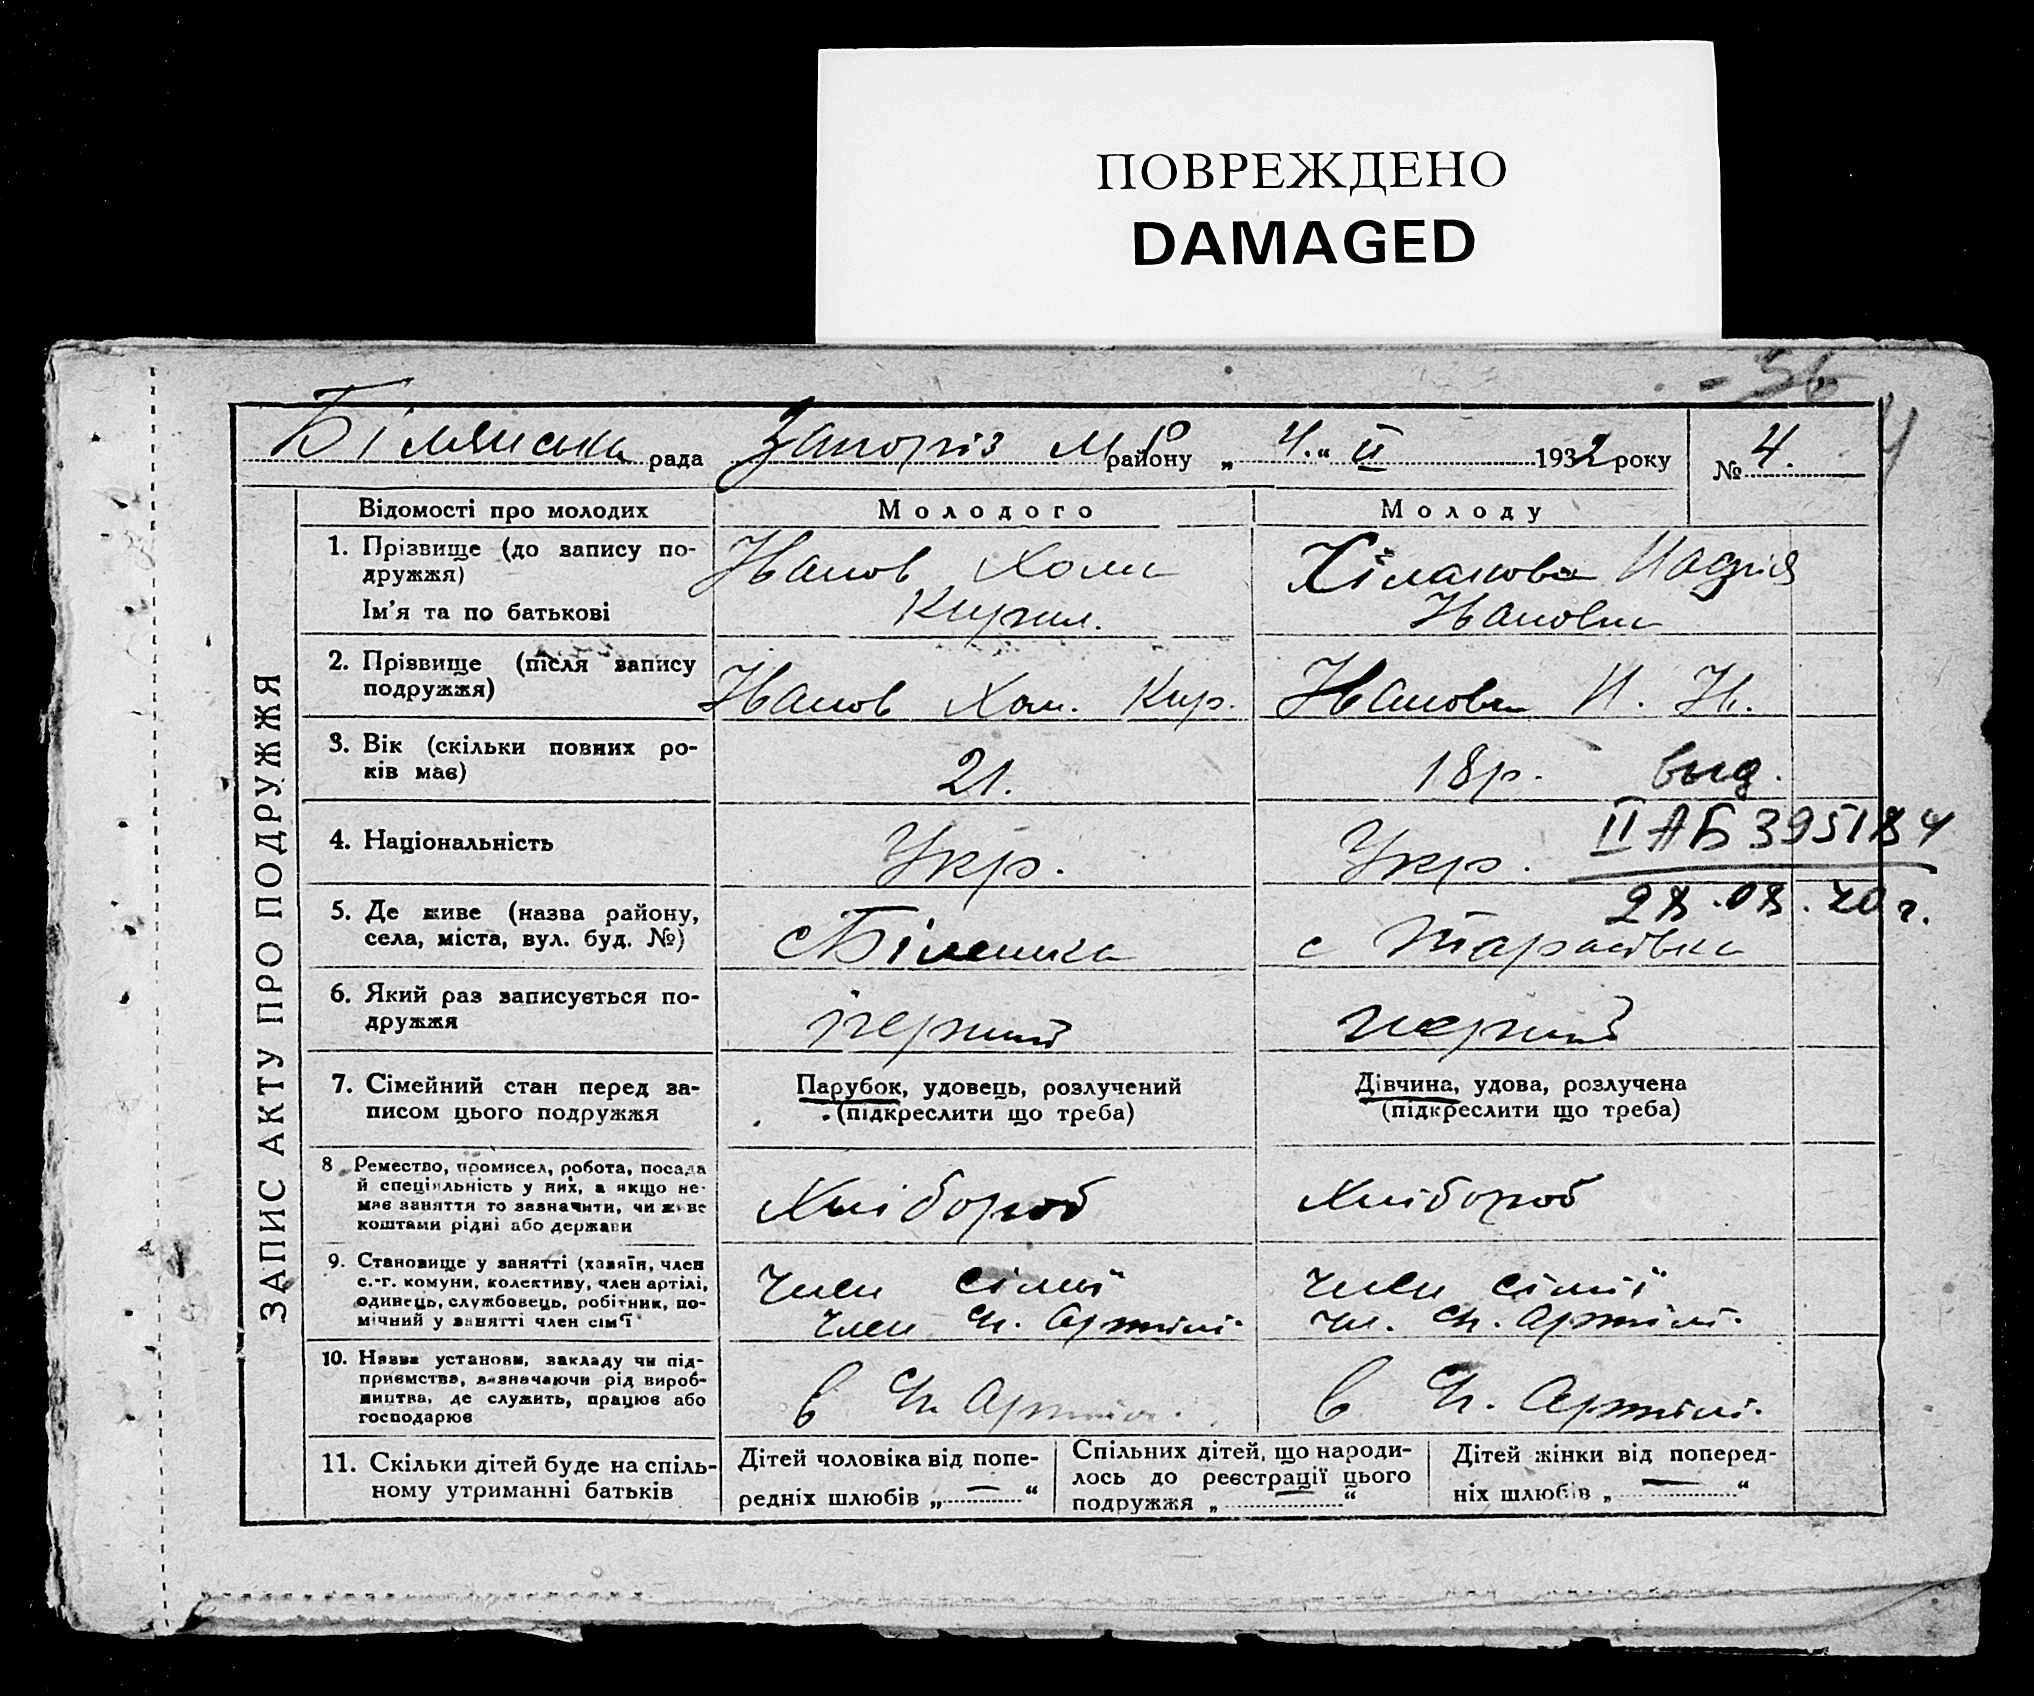 ПОВРЕЖДЕНО
DAMAGED
Білянська рада Запоріз м району „ 4. “ II 1932 року № 4.
ЗАПИС АКТУ ПРО ПОДРУЖЖЯ
Відомості про молодих Молодого Молоду
1. Прізвище (до запису по-
дружжя)
Ім'я та по батькові
Иванов Хома
Кирил.
Надія
Ивановна
2. Прізвище (після запису
подружжя)
Иванов Хом. Кир. Иванова Н. Ив.
3. Вік (скільки повних ро-
ків має)
21. 18 р. выд.
4. Національність
Укр. Укр. II АБ 395184
28.08.70 г.
5. Де живе (назва району,
села, міста, вул. буд. №)
с Біленика с Тарасівка
6. Який раз записується по-
дружжя
перший перший
7. Сімейний стан перед за-
писом цього подружжя
Парубок, удовець, розлучений
(підкреслити що треба)
Дівчина, удова, розлучена
(підкреслити що треба)
8 Ремество, промисел, робота, посада
й спеціяльність у них, а якщо не-
має заняття то зазначити, чи живе
коштами рідні або держави
Хлібороб Хлібороб
9. Становище у занятті (хазяїн, член
с.-г. комуни, колективу, член артілі,
одинець, службовець, робітник, по-
мічний у занятті член сім'ї
член сімії
член Сг. Артілі
член сімії
чл. Сг. Артілі.
10. Назва установи, закладу чи під-
приємства, зазначаючи рід вироб-
ництва, де служить, працює або
господарює
в Сг. Артілі. в Сг. Артілі.
11. Скільки дітей буде на спіль-
ному утриманні батьків
Дітей чоловіка від попе-
редніх шлюбів „ — “
Спільних дітей, що народи-
лось до реєстрації цього
подружжя „ — “
Дітей жінки від поперед-
ніх шлюбів „ — “